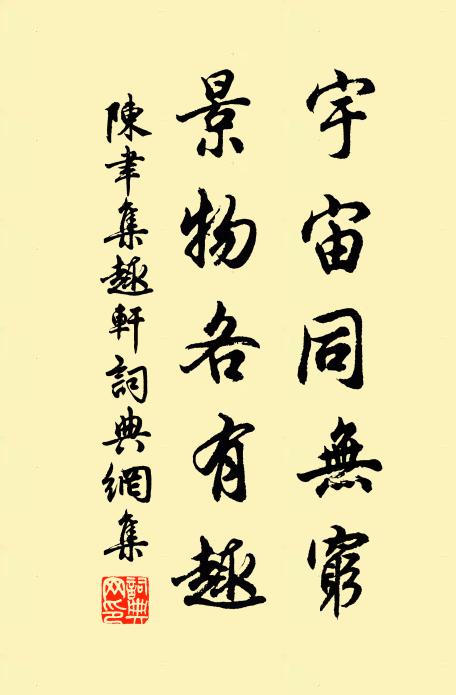 宇宙同無窮
景物各有趣
陳聿集趣軒詞典網集
詞典
网印